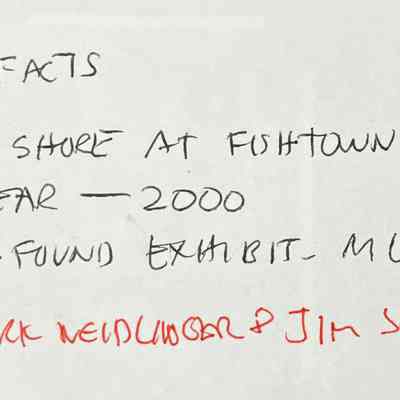 FACTS
SHORE AT FISHTOWN
EAR — 2000
FOUND EXHIBIT - M
& JIM S